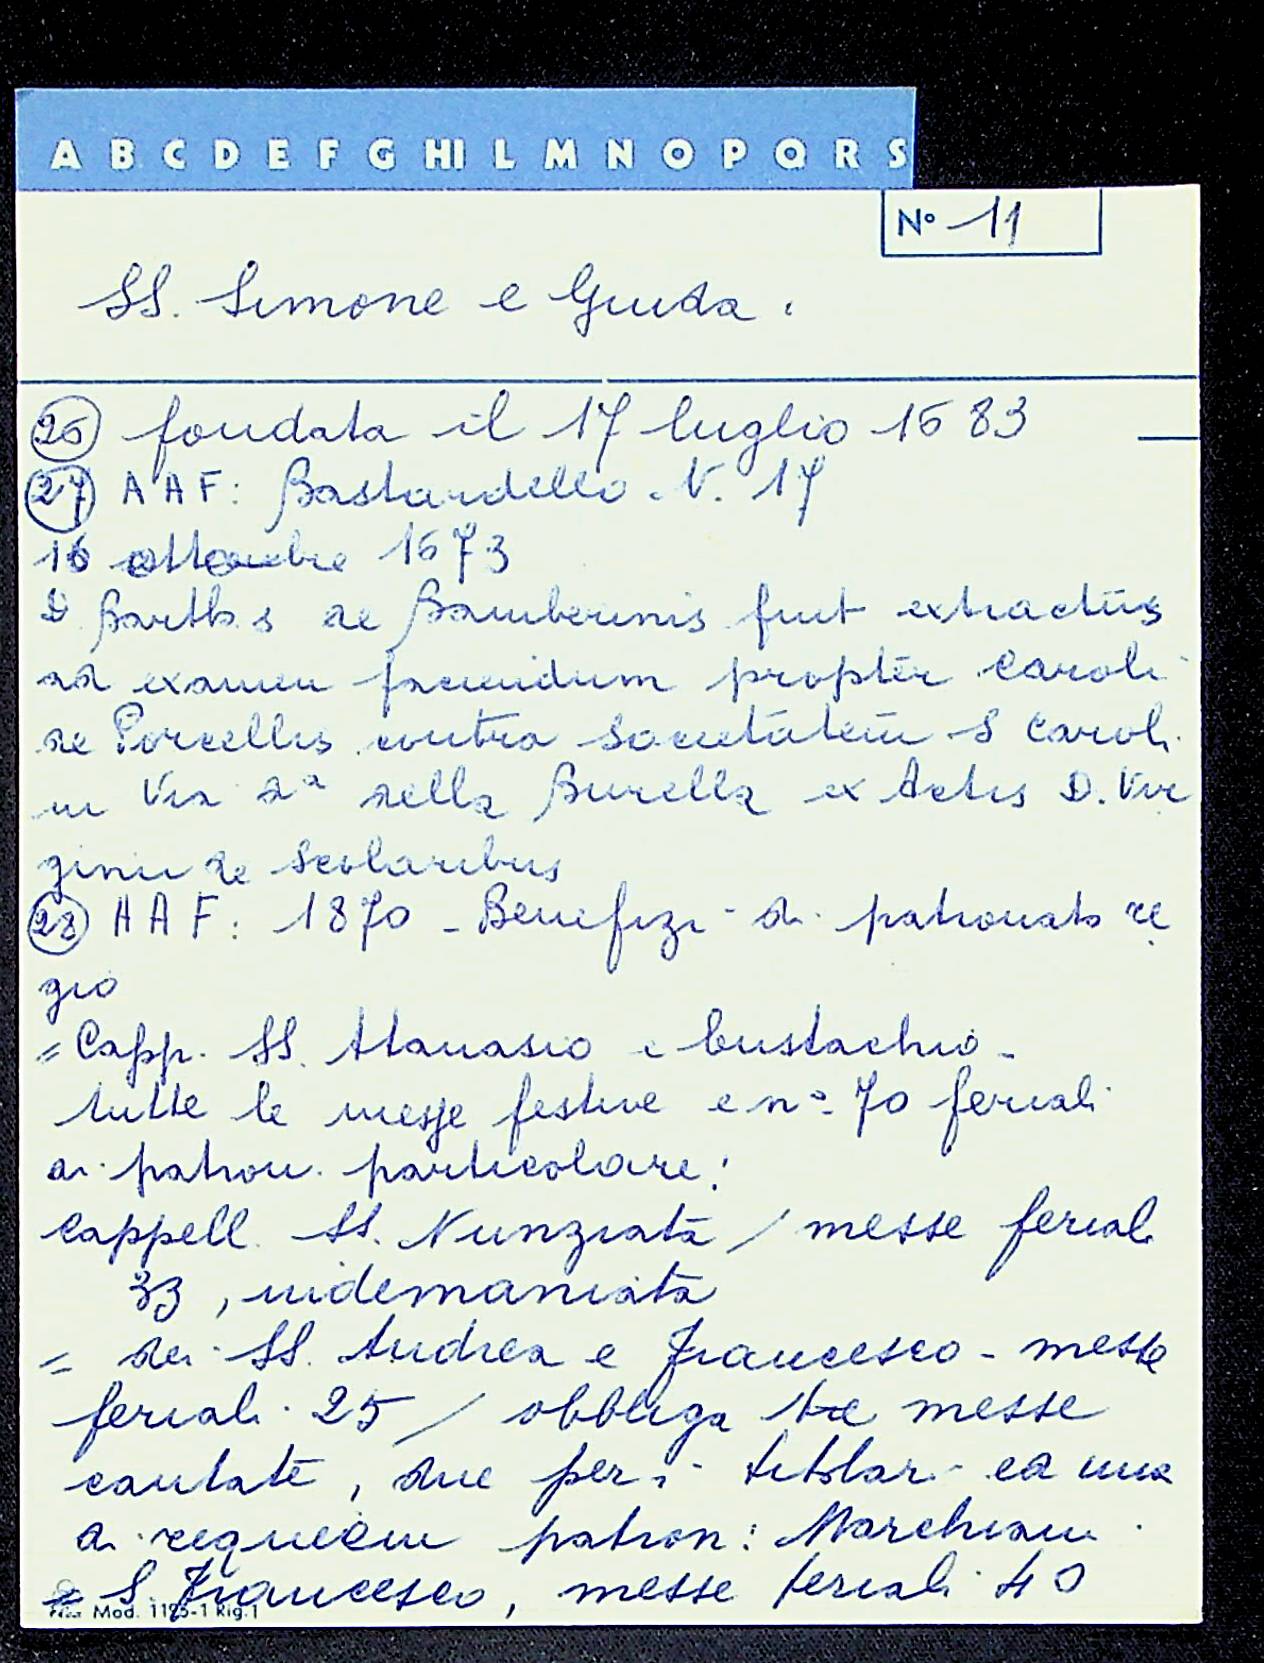 A B C D E F G HI L M N O P Q R S
N° 11
SS. Simone e Giuda.
26 fondata il 17 luglio 1683
27 A A F: Bastardello N. 17
16 ottobre 1673
D Barths de Bamberinis fuit extractus
ad examen faciendum propter Caroli
de Porcellis contra Societatem S Caroli
in Via Sa della Burella ex Actis D. Vir
ginii de Scolaribus
28 A A F: 1870 - Benefizi di patronato re
gio
= Capp. SS. Atanasio e Eustachio -
tutte le messe festive e n° 70 feriali
di patron. particolare:
Cappell. SS. Nunziata / messe feriali
33, indemaniata
= dei SS. Andrea e Francesco - messe
feriali 25 / obbliga tre messe
cantate, due per i titolari ed una
di requiem patron: Marchiani
= S. Francesco, messe feriali 40
Mod. 1195-1 Rig.1